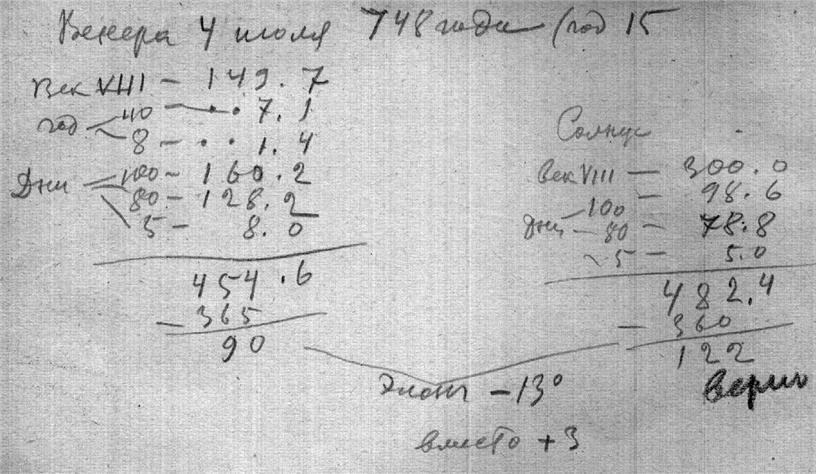 Венера 4 июля 748 года (год 15
Век VIII – 149.7
год 40 – . . 7.1
8 – . . 1.4
Дни 100 – 160.2
80 – 128.2
5 – 8.0
454.6
– 365
90
Солнце
Век VIII – 300.0
Дни 100 – 98.6
80 – 78.8
5 – 5.0
482.4
– 360
122
Элонг – 13°
верно
вместо + 3